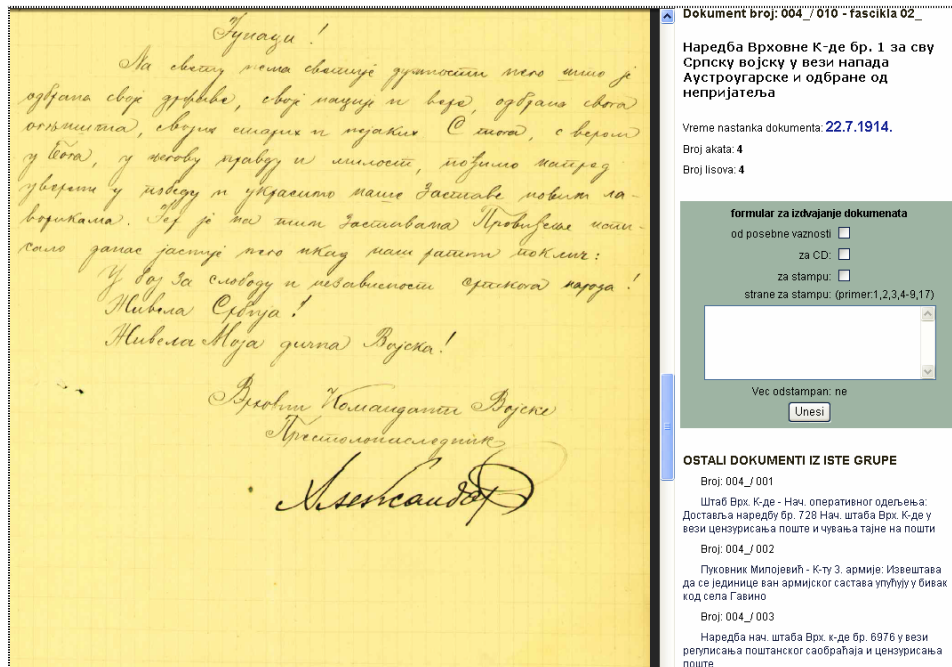 Јунаци!
На свету нема светије дужности него што је
одбрана своје државе, своје нације и вере, одбрана свога
огњишта, својих старих и нејаких. С тога, с вером
у Бога, у његову правду и милост, пођимо напред
уверени у победу и украсимо наше заставе новим ла-
ворикама. Јер је на тим заставама Провиђење испи-
сало данас јасније него икад наш ратни поклич:
У бој за слободу и независност српскога народа!
Живела Србија!
Живела Моја дична Војска!
Врховни Командант Војске
Престолонаследник
Александар
Dokument broj: 004_/ 010 - fascikla 02_
Наредба Врховне К-де бр. 1 за сву
Српску војску у вези напада
Аустроугарске и одбране од
непријатеља
Vreme nastanka dokumenta: 22.7.1914.
Broj akata: 4
Broj lisova: 4
formular za izdvajanje dokumenata
od posebne vaznosti
za CD:
za stampu:
strane za stampu: (primer:1,2,3,4-9,17)
Vec odstampan: ne
Unesi
OSTALI DOKUMENTI IZ ISTE GRUPE
Broj: 004_/ 001
Штаб Врх. К-де - Нач. оперативног одељења:
Доставља наредбу бр. 728 Нач. штаба Врх. К-де у
вези цензурисања поште и чувања тајне на пошти
Broj: 004_/ 002
Пуковник Милојевић - К-ту 3. армије: Извештава
да се јединице ван армијског састава упућују у бивак
код села Гавино
Broj: 004_/ 003
Наредба нач. штаба Врх. к-де бр. 6976 у вези
регулисања поштанског саобраћаја и цензурисања
поште